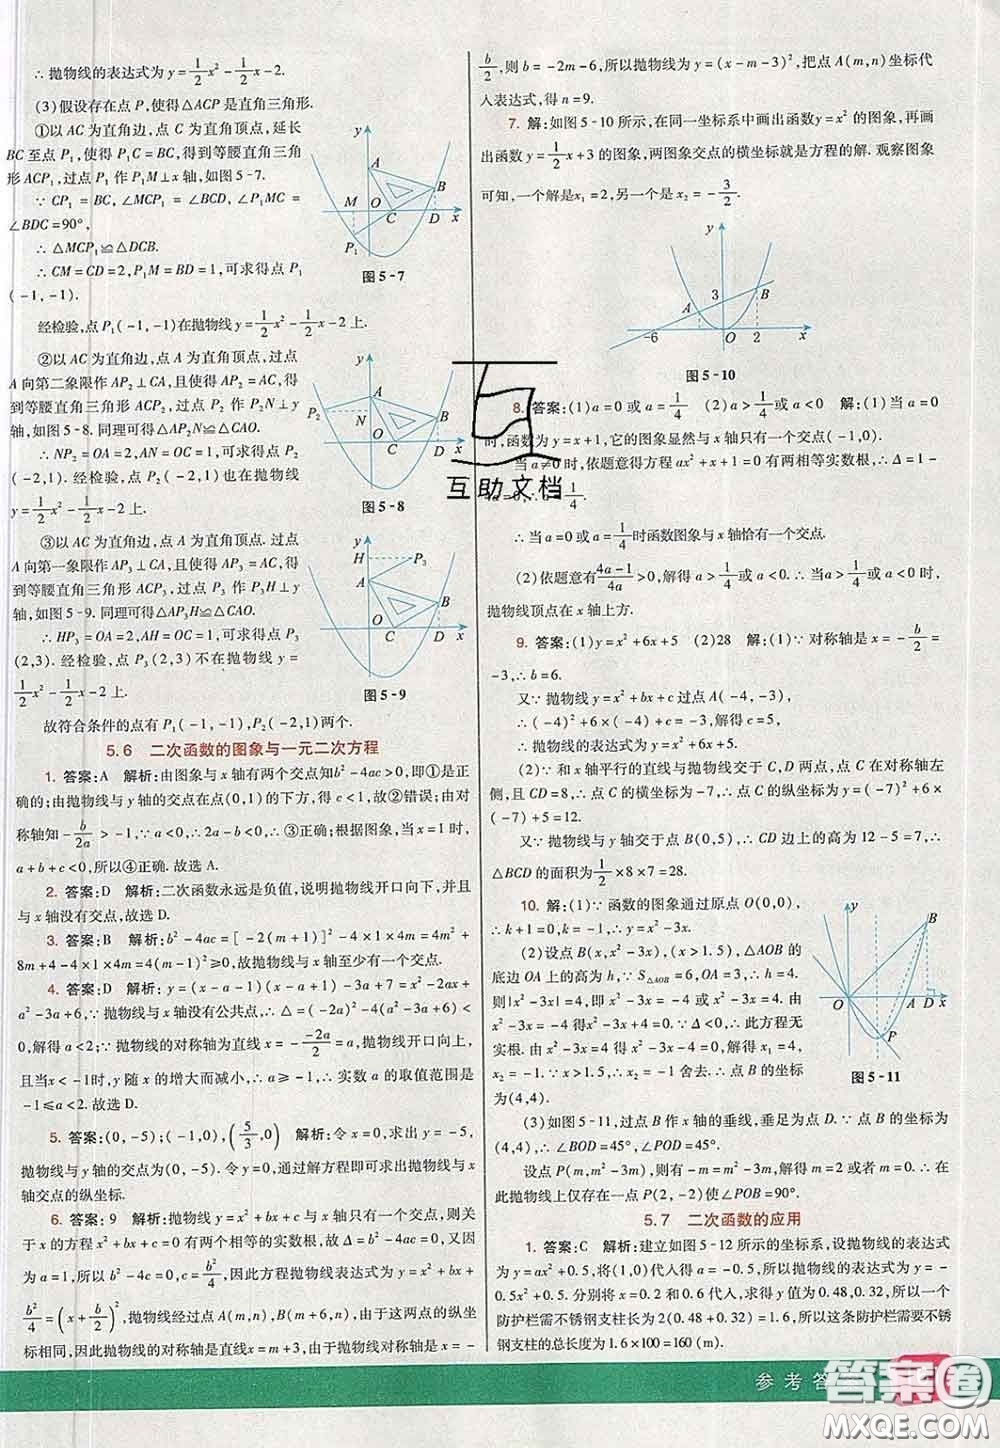 ∴ 抛物线的表达式为 y=1/2x²-1/2x-2.
(3)假设存在点 P,使得△ACP 是直角三角形.
①以 AC 为直角边,点 C 为直角顶点,延长
BC 至点 P₁,使得 P₁C=BC,得到等腰直角三角
形 ACP₁,过点 P₁ 作 P₁M⊥x 轴,如图 5-7.
∵ CP₁=BC, ∠MCP₁=∠BCD, ∠P₁MC=
∠BDC=90°,
∴ △MCP₁≌△DCB.
∴ CM=CD=2,P₁M=BD=1,可求得点 P₁
(-1,-1).
经检验,点 P₁(-1,-1)在抛物线 y=1/2x²-1/2x-2 上.
y
A
B
M
O
C
D
x
P₁
图 5-7
②以 AC 为直角边,点 A 为直角顶点,过点
A 向第二象限作 AP₂⊥CA,且使得 AP₂=AC,得
到等腰直角三角形 ACP₂,过点 P₂ 作 P₂N⊥y
轴,如图 5-8.同理可得△AP₂N≌△CAO.
∴ NP₂=OA=2,AN=OC=1,可求得点 P₂
(-2,1). 经检验,点 P₂(-2,1)在抛物线
y=1/2x²-1/2x-2 上.
y
A
P₂
N
B
O
C
D
x
图 5-8
③以 AC 为直角边,点 A 为直角顶点,过点
A 向第一象限作 AP₃⊥CA,且使得 AP₃=AC,得
到等腰直角三角形 ACP₃,过点 P₃ 作 P₃H⊥y
轴,如图 5-9.同理可得△AP₃H≌△CAO.
∴ HP₃=OA=2,AH=OC=1,可求得点 P₃
(2,3). 经检验,点 P₃(2,3)不在抛物线 y=
1/2x²-1/2x-2 上.
y
H
P₃
A
B
O
C
D
x
图 5-9
故符合条件的点有 P₁(-1,-1),P₂(-2,1)两个.
5.6 二次函数的图象与一元二次方程
1. 答案:A 解析:由图象与 x 轴有两个交点知b²-4ac>0,即①是正
确的;由抛物线与 y 轴的交点在点(0,1)的下方,得 c<1,故②错误;由对
称轴知-b/2a>-1,∵ a<0,∴ 2a-b<0,∴ ③正确;根据图象,当 x=1 时,
a+b+c<0,所以④正确. 故选 A.
2. 答案:D 解析:二次函数永远是负值,说明抛物线开口向下,并且
与 x 轴没有交点,故选 D.
3. 答案:B 解析:b²-4ac=[-2(m+1)]²-4×1×4m=4m²+
8m+4-4×1×4m=4(m-1)²≥0,故抛物线与 x 轴至少有一个交点.
4. 答案:D 解析:y=(x-a-1)(x-a+1)-3a+7=x²-2ax+
a²-3a+6,∵ 抛物线与 x 轴没有公共点,∴ △=(-2a)²-4(a²-3a+6)<
0,解得 a<2;∵ 抛物线的对称轴为直线 x=--2a/2=a,抛物线开口向上,
且当 x<-1 时,y 随 x 的增大而减小,∴ a≥-1,∴ 实数 a 的取值范围是
-1≤a<2.
5. 答案:(0,-5);(-2,0),(5/3,0) 解析:令 x=0,求出 y=-5,
抛物线与 y 轴的交点为(0,-5).令 y=0,通过解方程即可求出抛物线与 x
轴交点的纵坐标.
6. 答案:9 解析:抛物线 y=x²+bx+c 与 x 轴只有一个交点,则关
于 x 的方程有两个相等的实数根,故△=b²-4ac=0,由于
a=1,所以 b²-4c=0,c=b²/4,因此方程抛物线表达式为 y=x²+bx+
b²/4=(x+b/2)²,抛物线经过点 A(m,n),B(m+6,n),由于这两点的纵坐
标相同,因此抛物线的对称轴为直线x=m+3,故 m+3=-
b/2,则 b=-2m-6,所以抛物线为 y=(x-m-3)²,把点 A(m,n)坐标代
入表达式,得 n=9.
7. 解:如图 5-10 所示,在同一坐标系中画出函数y=x² 的图象,再画
出函数 y=1/2x+3 的图象,两图象交点的横坐标就是方程的解.观察图象
可知,一个解是x₁=2,另一个是 x₂=-3/2.
y
3
A
B
-6
O
2
x
图 5-10
8. 答案:(1)a=0 或 a=1/4 (2)a>1/4 或 a<0 解:(1)当 a=0
时,函数为 y=x+1,它的图象显然与 x 轴只有一个交点(-1,0).
当 a≠0 时,依题意得方程 ax²+x+1=0 有两相等实数根,∴ △=1-
4a=0,∴ a=1/4.
∴ 当 a=0 或 a=1/4时函数图象与 x轴恰有一个交点.
(2)依题意有4a-1/4a>0,解得 a>1/4或 a<0,∴ 当 a>1/4或 a<0 时,
抛物线顶点在 x 轴上方.
9. 答案:(1)y=x²+6x+5 (2)28 解:(1)∵ 对称轴是 x=-b/2=
-3,∴ b=6.
又∵ 抛物线 y=x²+bx+c 过点 A(-4,-3),
∴ (-4)²+6×(-4)+c=-3,解得 c=5,
∴ 抛物线的表达式为 y=x²+6x+5.
(2)∵ 和 x 轴平行的直线与抛物线交于 C,D 两点,点 C 在对称轴左
侧,且 CD=8,∴ 点 C 的横坐标为-7,∴ 点 C 的纵坐标为(-7)²+6×
(-7)+5=12.
又∵ 抛物线与 y 轴交于点 B(0,5),∴ CD 边上的高为 12-5=7,∴
△BCD 的面积为1/2×8×7=28.
10. 解:(1)∵ 函数的图象通过原点 O(0,0),
∴ k+1=0,k=-1,∴ y=x²-3x.
(2)设点 B(x,x²-3x),(x>1.5),△AOB 的
底边 OA 上的高为 h,∵ S△AOB=6,OA=3,∴ h=4,
则|x²-3x|=4,即 x²-3x=4 或 x²-3x=-4. 由
x²-3x=-4 得 x²-3x+4=0,△<0,此方程无
实根. 由 x²-3x=4 得 x²-3x-4=0,解得 x₁=4,
x₂=-1. ∵ x>1.5,∴ x=4,∴ 点 B 的坐标为
(4,4).
y
B
O
A
D
x
P
图 5-11
(3)如图 5-11,过点 B 作 x 轴的垂线,垂足为点 D.∵ 点 B 的坐标为
(4,4),∴ ∠BOD=45°,∠POA=45°.
设点 P(m,m²-3m),则有-m=m²-3m,解得 m=2 或 m=0(舍去),
在此抛物线上仅存在一点 P(2,-2)使∠POB=90°.
5.7 二次函数的应用
1. 答案:C 解析:建立如图 5-12 所示的坐标系,设抛物线的表达式
为 y=ax²+0.5,将(1,0)代入得 a=-0.5,所以抛物线的表达式为 y=-
0.5x²+0.5.分别将 x=0.2 和 0.6 代入,求得 y 的值为 0.48,0.32,所以一个
防护栏需不锈钢支柱长为 2(0.48+0.32)=1.6,所以这条防护栏需要不锈
钢支柱的总长度为 1.6×100=160(m).
互助文档
参考答
答案圈
MXQE.COM